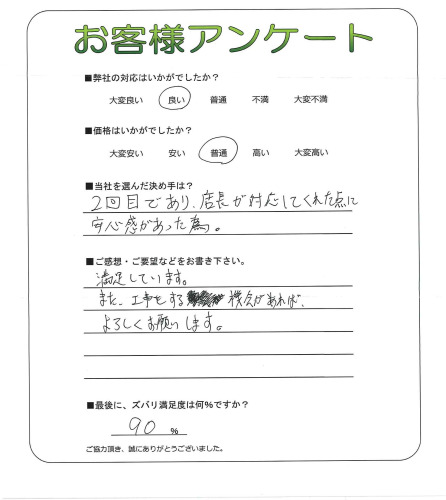 お客様アンケート
■弊社の対応はいかがでしたか?
大変良い 良い 普通 不満 大変不満
■価格はいかがでしたか?
大変安い 安い 普通 高い 大変高い
■当社を選んだ決め手は?
2回目であり、店長が対応してくれた点に
安心感があった為。
■ご感想・ご要望などをお書き下さい。
満足しています。
また、工事をする 機会があれば、
よろしくお願いします。
■最後に、ズバリ満足度は何%ですか?
90 %
ご協力頂き、誠にありがとうございました。